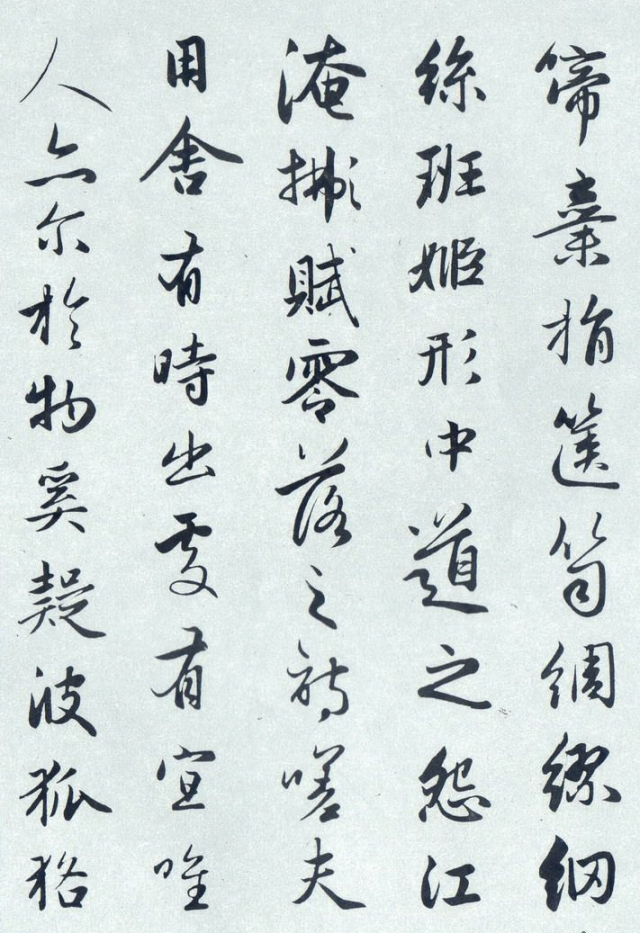 啼棄捐篋笥綢繆網
絲班姬形中道之怨江
淹擬賦零落之詩嗟夫
用舍有時出處有宜唯
人亦尔於物奚疑彼狐狢